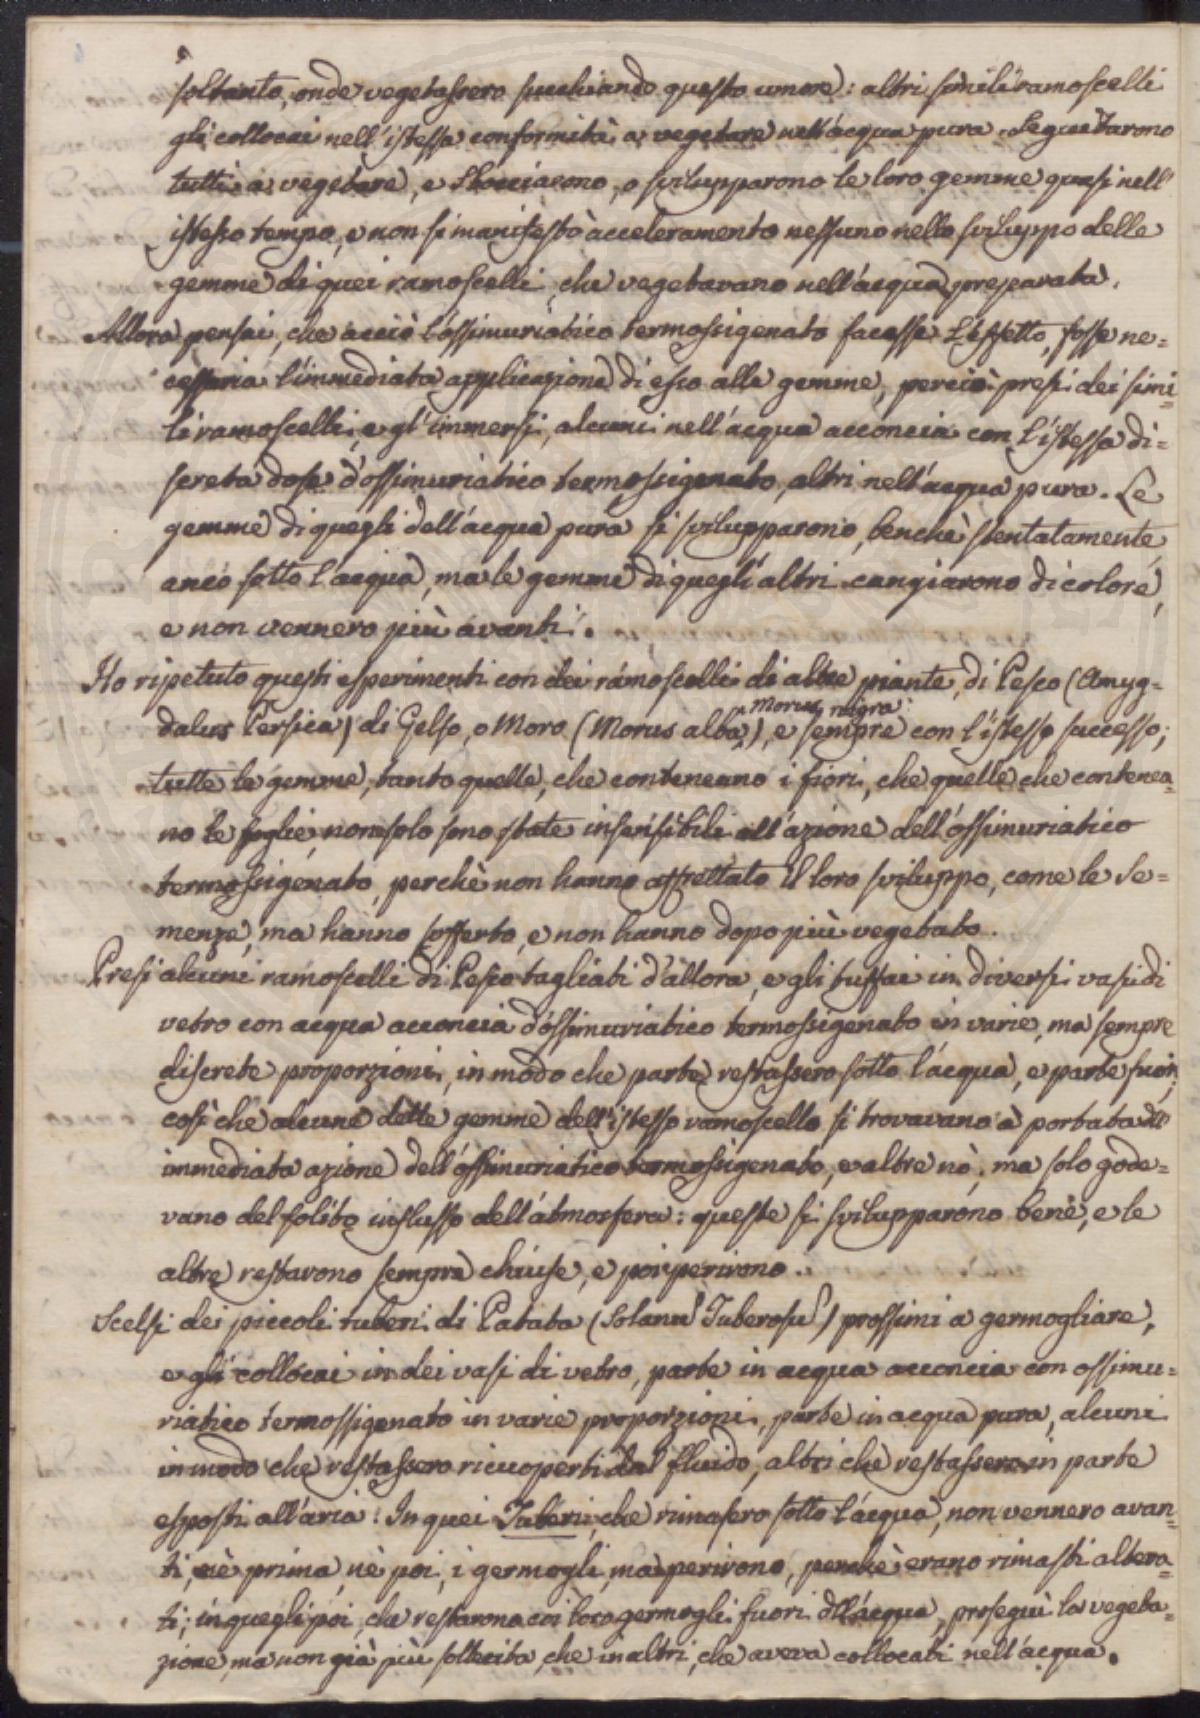 soltanto, onde vegetassero succhiando questo umore: altri simili ramoscelli
gli collocai nell'istessa conformità a vegetare nell'acqua pura. Seguitarono
tutti a vegetare, e sbocciarono, o svilupparono le loro gemme quasi nell'
istesso tempo, e non si manifestò acceleramento nessuno nello sviluppo delle
gemme di quei ramoscelli, che vegetavano nell'acqua preparata.
Allora pensai, che acciò l'ossimuriatico termossigenato facesse l'effetto, fosse ne=
cessaria l'immediata applicazione di esso alle gemme, perciò presi dei simi=
li ramoscelli, e gl'immersi, alcuni nell'acqua acconcia con l'istessa di=
screta dose d'ossimuriatico termossigenato, altri nell'acqua pura. Le
gemme di quegli dell'acqua pura si svilupparono, benchè stentatamente,
anco sotto l'acqua, ma le gemme di quegli altri cangiarono di colore,
e non vennero più avanti.
Ho ripetuto questi esperimenti con dei ramoscelli di altre piante, di Pesco (Amyg-
dalus Persica) di Gelso, o Moro (Morus alba, Morus nigra), e sempre con l'istesso successo;
tutte le gemme, tanto quelle, che conteneano i fiori, che quelle che contenea=
no le foglie, non solo sono state insensibili all'azione dell'ossimuriatico
termossigenato, perchè non hanno affrettato il loro sviluppo, come le se=
menze, ma hanno sofferto, e non hanno dopo più vegetato.
Presi alcuni ramoscelli di Pesco tagliati d'allora, e gli tuffai in diversi vasi di
vetro con acqua acconcia d'ossimuriatico termossigenato in varie, ma sempre
discrete proporzioni, in modo che parte restassero sotto l'acqua, e parte fuori,
così che alcune dette gemme dell'istesso ramoscello si trovavano a portata dll'
immediata azione dell'ossimuriatico termossigenato, e altre nò, ma solo gode=
vano del solito influsso dell'atmosfera: queste si svilupparono bene, e le
altre restarono sempre chiuse, e poi perirono.
Scelsi dei piccoli tuberi di Patata (Solanu Tuberosu) prossimi a germogliare,
e gli collocai in dei vasi di vetro, parte in acqua acconcia con ossimu=
riatico termossigenato in varie proporzioni, parte in acqua pura, alcuni
in modo che restassero ricuoperti dal fluido, altri che restassero in parte
esposti all'aria: In quei Tuberi, che rimasero sotto l'acqua, non vennero avan=
ti, nè prima, nè poi, i germogli, ma perirono, perchè erano rimasti altera=
ti; in quegli poi, che restarono coi loro germogli fuori dll'acqua, proseguì la vegeta=
zione, ma non già più sollecita, che in altri, che aveva collocati nell'acqua.